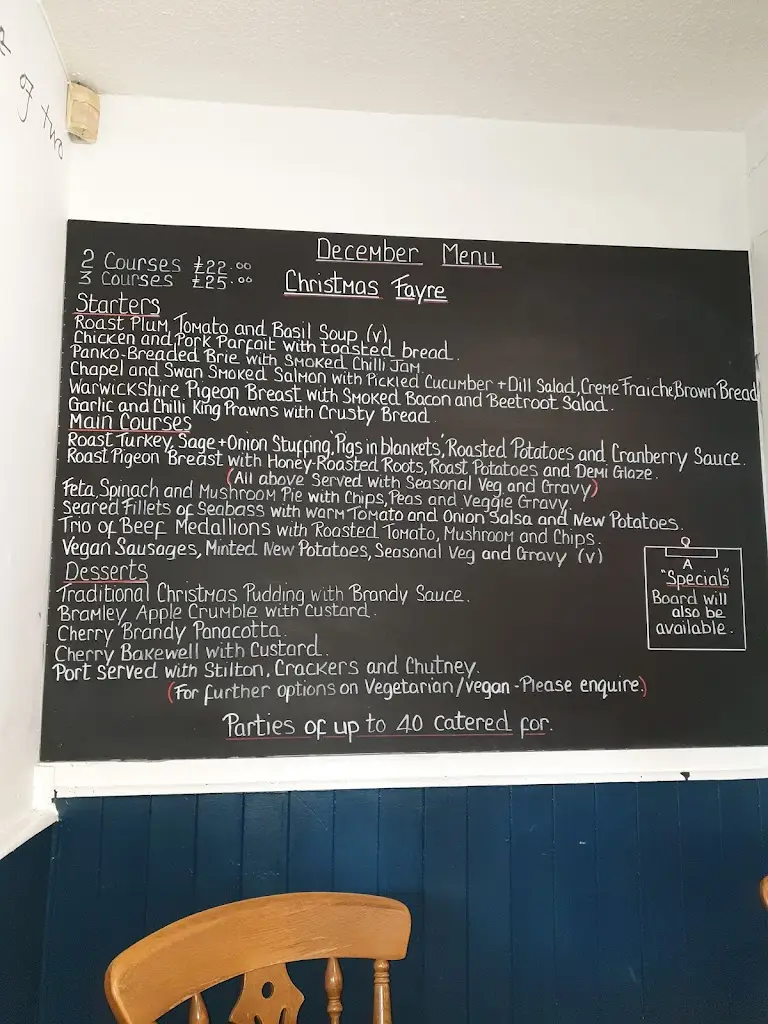 of two
December Menu
2 Courses £22.00
3 Courses £25.00
Christmas Fayre
Starters
Roast Plum Tomato and Basil Soup (v)
Chicken and Pork Parfait with toasted bread.
Panko-Breaded Brie with Smoked Chilli Jam.
Chapel and Swan Smoked Salmon with Pickled Cucumber + Dill Salad, Creme Fraiche, Brown Bread
Warwickshire Pigeon Breast with Smoked Bacon and Beetroot Salad.
Garlic and Chilli King Prawns with Crusty Bread.
Main Courses
Roast Turkey, Sage + Onion Stuffing, 'Pigs in blankets', Roasted Potatoes and Cranberry Sauce.
Roast Pigeon Breast with Honey-Roasted Roots, Roast Potatoes and Demi Glaze.
(All above Served with Seasonal Veg and Gravy)
Feta, Spinach and Mushroom Pie with Chips, Peas and Veggie Gravy.
Seared Fillets of Seabass with warm Tomato and Onion Salsa and New Potatoes.
Trio of Beef Medallions with Roasted Tomato, Mushroom and Chips.
Vegan Sausages, Minted New Potatoes, Seasonal Veg and Gravy (v)
Desserts
Traditional Christmas Pudding with Brandy Sauce.
Bramley Apple Crumble with Custard.
Cherry Brandy Panacotta.
Cherry Bakewell with Custard.
Port Served with Stilton, Crackers and Chutney.
(For further options on Vegetarian/vegan - Please enquire.)
Parties of up to 40 catered for.
A
"Specials"
Board will
also be
available.